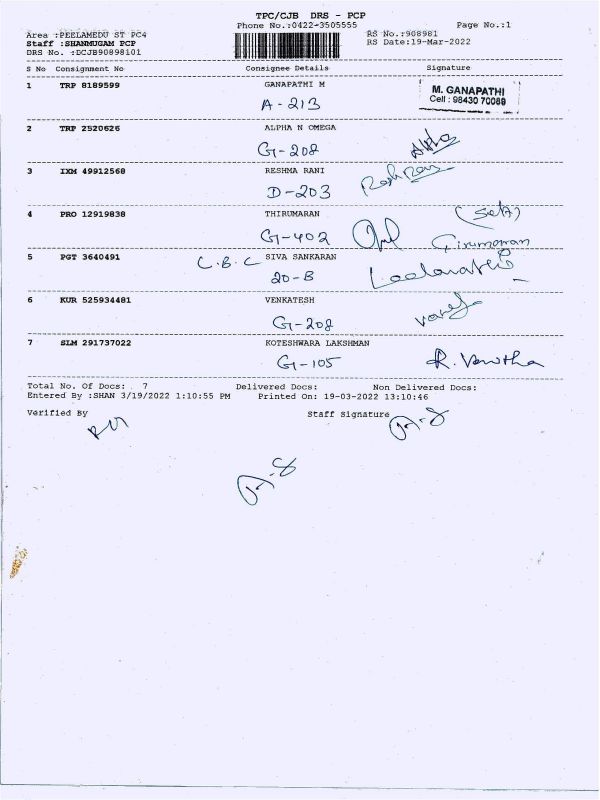 TPC/CJB DRS - PCP
Phone No.:0422-3505555 Page No.:1
Area :PEELAMEDU ST PC4 RS No.:908981
Staff :SHANMUGAM PCP RS Date:19-Mar-2022
DRS No. :DCJB90898101
S No Consignment No Consignee Details Signature
1 TRP 8189599 GANAPATHI M M. GANAPATHI
A-213 Cell : 98430 70089
2 TRP 2520626 ALPHA N OMEGA
G-208 Alpha
3 IXM 49912568 RESHMA RANI
D-203
4 PRO 12919838 THIRUMARAN
G-402
5 PGT 3640491 C.B.C SIVA SANKARAN
20-B
6 KUR 525934481 VENKATESH
G-208
7 SLM 291737022 KOTESHWARA LAKSHMAN
G-105
Total No. Of Docs: 7 Delivered Docs: Non Delivered Docs:
Entered By :SHAN 3/19/2022 1:10:55 PM Printed On: 19-03-2022 13:10:46
Verified By Staff Signature